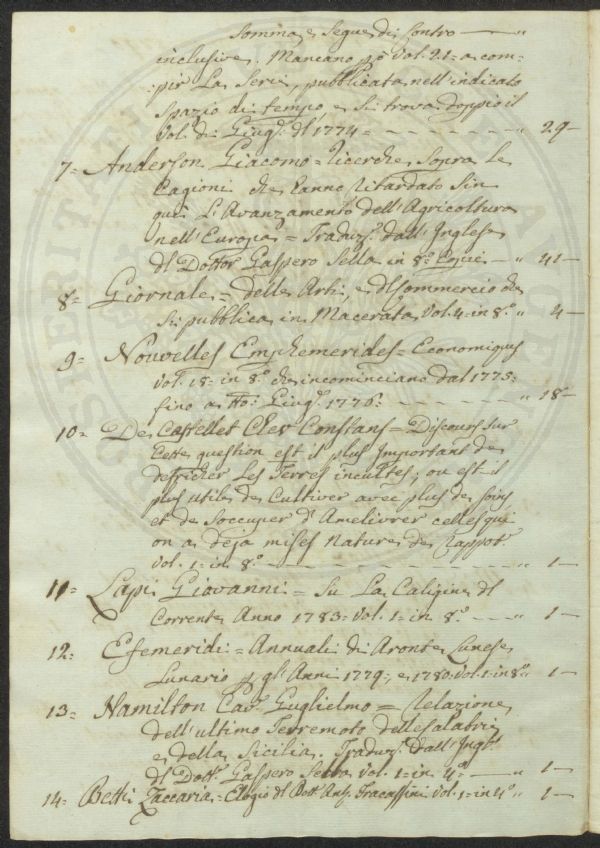 Somma, e Segue di Contro — "
inclusive. Mancano po Vol. 21 = a com-
= pir La Serie, pubblicata nell'indicato
Spazio di tempo, e Si trova doppio il
Vol. di Giug. dl 1774 = - - - - - - - " 29 —
7 = Anderson Giacomo = Ricerche Sopra Le
Cagioni che hanno Ritardato Sin
qui L'Avanzamento dell'Agricoltura
nell'Europa = Traduz. dall'Inglese
dl Dottor Gaspero Sella in 8.°
8 = Giornale = delle Arti, e dl Commercio che
Si pubblica in Macerata Vol. 4 = in 8.° " 4 —
9 = Nouvelles Emphemerides = Economiques
Vol. 18 = in 8.° che incominciano dal 1775 =
fino a tto: Giug. 1776 : - - - - - - - " 18 —
10 = De Castellet Clev Constans = Discours sur
Cette question est il plus Important de
defricher Les Terres incultes; ou est-il
plus utile de Cultiver avec plus de soins
et de Soccuper d'Ameliorer celles qui
on a deja mises Nature de Rapport.
Vol. 1 = in 8.° - - - - - - - " 1 —
11 = Lapi Giovanni = Su La Caligine dl
Corrente Anno 1783 = Vol. 1 = in 8.° - - - " 1 —
12 = Efemeridi = Annuali di Aronte Lunese
Lunario p gl'Anni 1779 =, e 1780 Vol. 1 = in 8.° " 1 —
13 = Hamilton Cav. Guglielmo = Relazione
dell'ultimo Terremoto delle Calabrie
e della Sicilia. Traduz. dall'Ingl.
dl Dott. Gaspero Sella Vol. 1 = in 4.° — " 1 —
14 = Betti Zaccaria = Elogio dl Dott. Ant. Fracassini Vol. 1 = in 4.° " 1 —